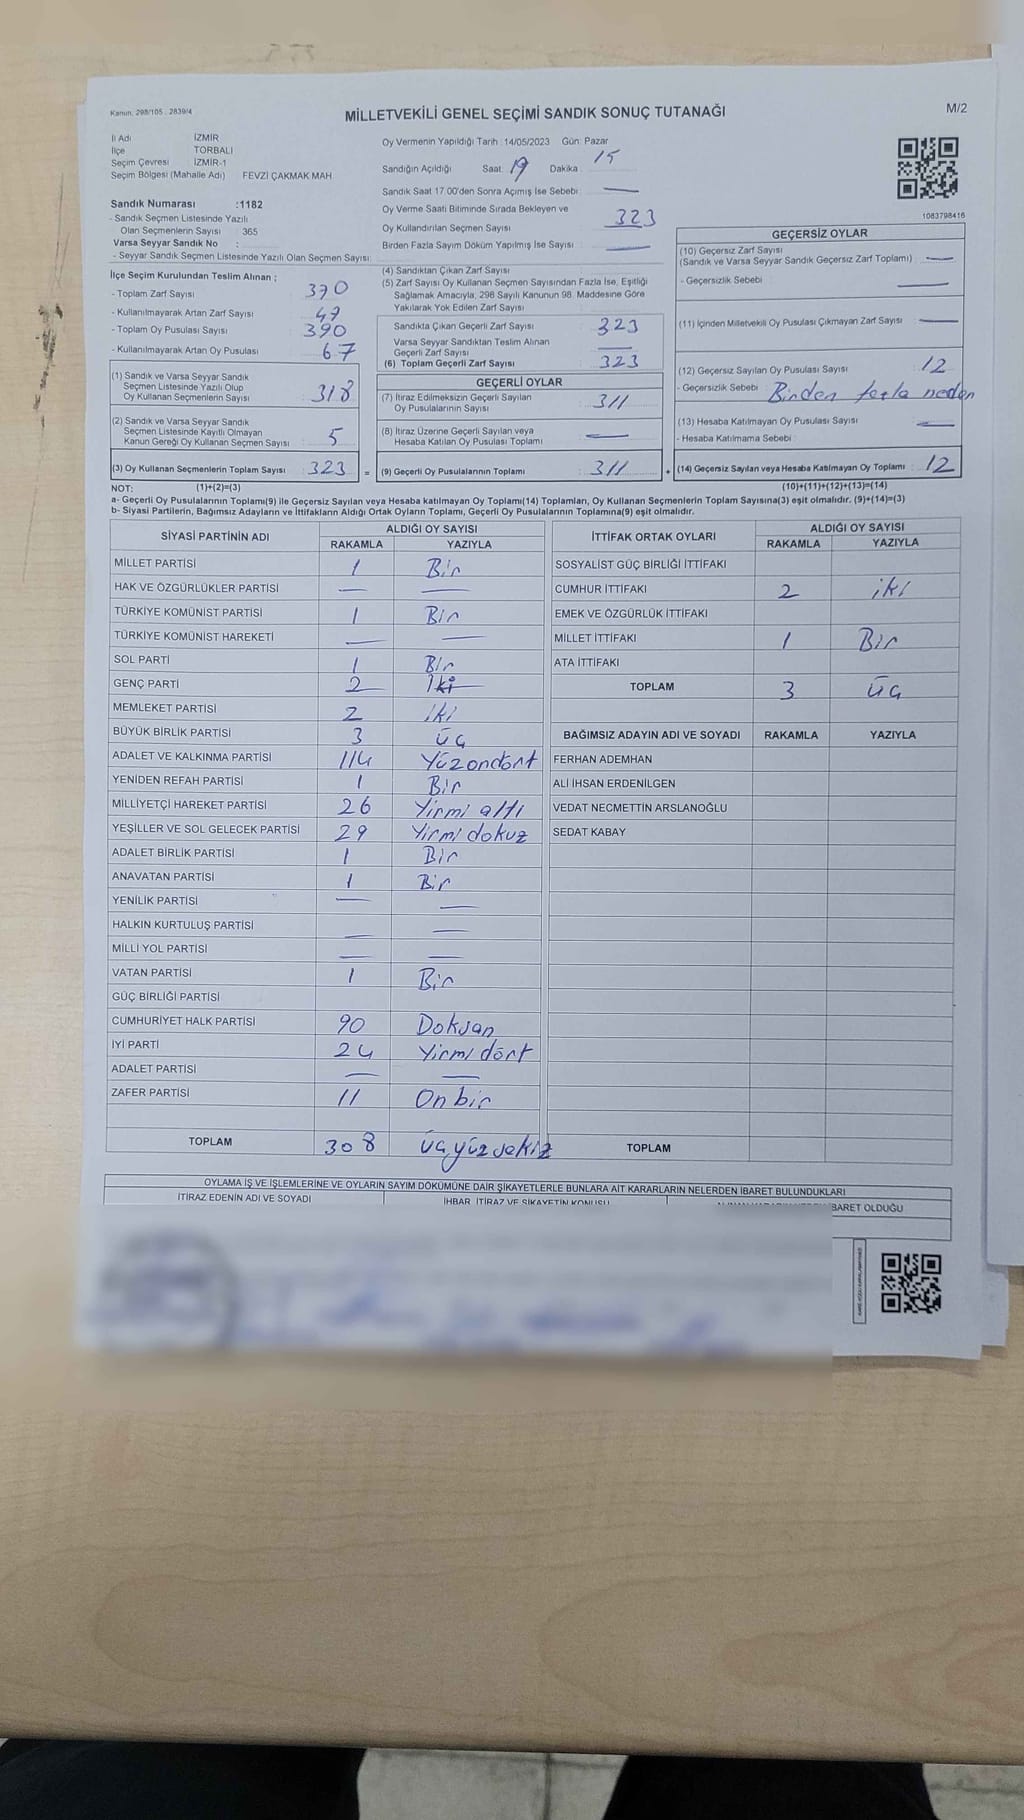 Kanun: 298/105 . 2839/4
MİLLETVEKİLİ GENEL SEÇİMİ SANDIK SONUÇ TUTANAĞI
M/2
İl Adı İZMİR
İlçe TORBALI
Seçim Çevresi İZMİR-1
Seçim Bölgesi (Mahalle Adı) FEVZİ ÇAKMAK MAH
Sandık Numarası :1182
- Sandık Seçmen Listesinde Yazılı
Olan Seçmenlerin Sayısı 365
Varsa Seyyar Sandık No :
- Seyyar Sandık Seçmen Listesinde Yazılı Olan Seçmen Sayısı:
Oy Vermenin Yapıldığı Tarih : 14/05/2023 Gün: Pazar
Sandığın Açıldığı Saat: 19 Dakika : 15
Sandık Saat 17.00'den Sonra Açımış İse Sebebi : —
Oy Verme Saati Bitiminde Sırada Bekleyen ve
Oy Kullandırılan Seçmen Sayısı : 323
Birden Fazla Sayım Döküm Yapılmış İse Sayısı : —
1083798416
İlçe Seçim Kurulundan Teslim Alınan ;
- Toplam Zarf Sayısı : 370
- Kullanılmayarak Artan Zarf Sayısı : 47
- Toplam Oy Pusulası Sayısı : 390
- Kullanılmayarak Artan Oy Pusulası : 67
(1) Sandık ve Varsa Seyyar Sandık
Seçmen Listesinde Yazılı Olup
Oy Kullanan Seçmenlerin Sayısı : 318
(2) Sandık ve Varsa Seyyar Sandık
Seçmen Listesinde Kayıtlı Olmayan
Kanun Gereği Oy Kullanan Seçmen Sayısı : 5
(3) Oy Kullanan Seçmenlerin Toplam Sayısı : 323 =
(1)+(2)=(3)
(4) Sandıktan Çıkan Zarf Sayısı :
(5) Zarf Sayısı Oy Kullanan Seçmen Sayısından Fazla İse, Eşitliği
Sağlamak Amacıyla, 298 Sayılı Kanunun 98. Maddesine Göre
Yakılarak Yok Edilen Zarf Sayısı :
Sandıkta Çıkan Geçerli Zarf Sayısı : 323
Varsa Seyyar Sandıktan Teslim Alınan
Geçerli Zarf Sayısı : —
(6) Toplam Geçerli Zarf Sayısı : 323
GEÇERLİ OYLAR
(7) İtiraz Edilmeksizin Geçerli Sayılan
Oy Pusulalarının Sayısı : 311
(8) İtiraz Üzerine Geçerli Sayılan veya
Hesaba Katılan Oy Pusulası Toplamı : —
(9) Geçerli Oy Pusulalarının Toplamı : 311 +
GEÇERSİZ OYLAR
(10) Geçersiz Zarf Sayısı
(Sandık ve Varsa Seyyar Sandık Geçersiz Zarf Toplamı) : —
- Geçersizlik Sebebi : —
(11) İçinden Milletvekili Oy Pusulası Çıkmayan Zarf Sayısı : —
(12) Geçersiz Sayılan Oy Pusulası Sayısı : 12
- Geçersizlik Sebebi : Birden fazla neden
(13) Hesaba Katılmayan Oy Pusulası Sayısı : —
- Hesaba Katılmama Sebebi :
(14) Geçersiz Sayılan veya Hesaba Katılmayan Oy Toplamı : 12
(10)+(11)+(12)+(13)=(14)
NOT:
a- Geçerli Oy Pusulalarının Toplamı(9) ile Geçersiz Sayılan veya Hesaba katılmayan Oy Toplamı(14) Toplamları, Oy Kullanan Seçmenlerin Toplam Sayısına(3) eşit olmalıdır. (9)+(14)=(3)
b- Siyasi Partilerin, Bağımsız Adayların ve İttifakların Aldığı Ortak Oyların Toplamı, Geçerli Oy Pusulalarının Toplamına(9) eşit olmalıdır.
SİYASİ PARTİNİN ADI ALDIĞI OY SAYISI
RAKAMLA YAZIYLA
MİLLET PARTİSİ 1 Bir
HAK VE ÖZGÜRLÜKLER PARTİSİ — —
TÜRKİYE KOMÜNİST PARTİSİ 1 Bir
TÜRKİYE KOMÜNİST HAREKETİ — —
SOL PARTİ 1 Bir
GENÇ PARTİ 2 İki
MEMLEKET PARTİSİ 2 iki
BÜYÜK BİRLİK PARTİSİ 3 üç
ADALET VE KALKINMA PARTİSİ 114 Yüzondört
YENİDEN REFAH PARTİSİ 1 Bir
MİLLİYETÇİ HAREKET PARTİSİ 26 Yirmi altı
YEŞİLLER VE SOL GELECEK PARTİSİ 29 Yirmi dokuz
ADALET BİRLİK PARTİSİ 1 Bir
ANAVATAN PARTİSİ 1 Bir
YENİLİK PARTİSİ — —
HALKIN KURTULUŞ PARTİSİ — —
MİLLİ YOL PARTİSİ — —
VATAN PARTİSİ 1 Bir
GÜÇ BİRLİĞİ PARTİSİ
CUMHURİYET HALK PARTİSİ 90 Doksan
İYİ PARTİ 24 Yirmi dört
ADALET PARTİSİ — —
ZAFER PARTİSİ 11 On bir
TOPLAM 308 üçyüzsekiz
İTTİFAK ORTAK OYLARI ALDIĞI OY SAYISI
RAKAMLA YAZIYLA
SOSYALİST GÜÇ BİRLİĞİ İTTİFAKI
CUMHUR İTTİFAKI 2 iki
EMEK VE ÖZGÜRLÜK İTTİFAKI
MİLLET İTTİFAKI 1 Bir
ATA İTTİFAKI
TOPLAM 3 üç
BAĞIMSIZ ADAYIN ADI VE SOYADI RAKAMLA YAZIYLA
FERHAN ADEMHAN
ALİ İHSAN ERDENİLGEN
VEDAT NECMETTİN ARSLANOĞLU
SEDAT KABAY
TOPLAM
OYLAMA İŞ VE İŞLEMLERİNE VE OYLARIN SAYIM DÖKÜMÜNE DAİR ŞİKAYETLERLE BUNLARA AİT KARARLARIN NELERDEN İBARET BULUNDUKLARI
İTİRAZ EDENİN ADI VE SOYADI İHBAR, İTİRAZ VE ŞİKAYETİN KONUSU İBARET OLDUĞU